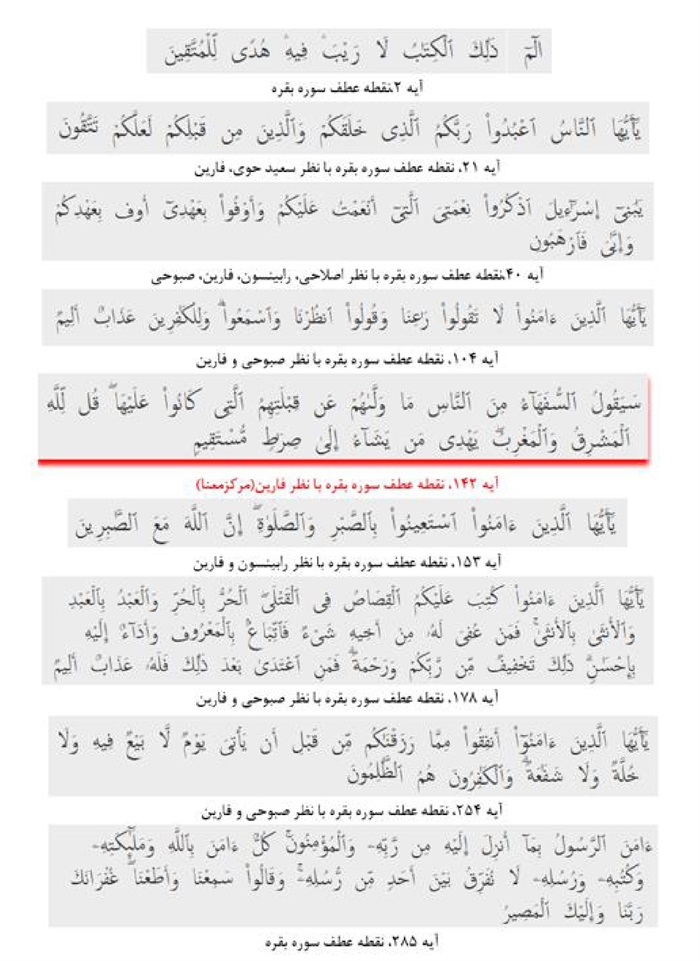 الٓمٓ ذَٰلِكَ ٱلْكِتَٰبُ لَا رَيْبَ ۛ فِيهِ ۛ هُدًى لِّلْمُتَّقِينَ
آیه ۲،نقطه عطف سوره بقره
يَٰٓأَيُّهَا ٱلنَّاسُ ٱعْبُدُوا۟ رَبَّكُمُ ٱلَّذِى خَلَقَكُمْ وَٱلَّذِينَ مِن قَبْلِكُمْ لَعَلَّكُمْ تَتَّقُونَ
آیه ۲۱، نقطه عطف سوره بقره با نظر سعید حوی، فارین
يَٰبَنِىٓ إِسْرَٰٓءِيلَ ٱذْكُرُوا۟ نِعْمَتِىَ ٱلَّتِىٓ أَنْعَمْتُ عَلَيْكُمْ وَأَوْفُوا۟ بِعَهْدِىٓ أُوفِ بِعَهْدِكُمْ
وَإِيَّٰىَ فَٱرْهَبُونِ
آیه ۴۰،نقطه عطف سوره بقره با نظر اصلاحی، رابینسون، فارین، صبوحی
يَٰٓأَيُّهَا ٱلَّذِينَ ءَامَنُوا۟ لَا تَقُولُوا۟ رَٰعِنَا وَقُولُوا۟ ٱنظُرْنَا وَٱسْمَعُوا۟ ۗ وَلِلْكَٰفِرِينَ عَذَابٌ أَلِيمٌ
آیه ۱۰۴، نقطه عطف سوره بقره با نظر صبوحی و فارین
سَيَقُولُ ٱلسُّفَهَآءُ مِنَ ٱلنَّاسِ مَا وَلَّىٰهُمْ عَن قِبْلَتِهِمُ ٱلَّتِى كَانُوا۟ عَلَيْهَا ۚ قُل لِّلَّهِ
ٱلْمَشْرِقُ وَٱلْمَغْرِبُ ۚ يَهْدِى مَن يَشَآءُ إِلَىٰ صِرَٰطٍ مُّسْتَقِيمٍ
آیه ۱۴۲، نقطه عطف سوره بقره با نظر فارین(مرکزمعنا)
يَٰٓأَيُّهَا ٱلَّذِينَ ءَامَنُوا۟ ٱسْتَعِينُوا۟ بِٱلصَّبْرِ وَٱلصَّلَوٰةِ ۚ إِنَّ ٱللَّهَ مَعَ ٱلصَّٰبِرِينَ
آیه ۱۵۳، نقطه عطف سوره بقره با نظر رابینسون و فارین
يَٰٓأَيُّهَا ٱلَّذِينَ ءَامَنُوا۟ كُتِبَ عَلَيْكُمُ ٱلْقِصَاصُ فِى ٱلْقَتْلَى ۖ ٱلْحُرُّ بِٱلْحُرِّ وَٱلْعَبْدُ بِٱلْعَبْدِ
وَٱلْأُنثَىٰ بِٱلْأُنثَىٰ ۚ فَمَنْ عُفِىَ لَهُۥ مِنْ أَخِيهِ شَىْءٌ فَٱتِّبَاعٌۢ بِٱلْمَعْرُوفِ وَأَدَآءٌ إِلَيْهِ
بِإِحْسَٰنٍ ۗ ذَٰلِكَ تَخْفِيفٌ مِّن رَّبِّكُمْ وَرَحْمَةٌ ۗ فَمَنِ ٱعْتَدَىٰ بَعْدَ ذَٰلِكَ فَلَهُۥ عَذَابٌ أَلِيمٌ
آیه ۱۷۸، نقطه عطف سوره بقره با نظر صبوحی و فارین
يَٰٓأَيُّهَا ٱلَّذِينَ ءَامَنُوٓا۟ أَنفِقُوا۟ مِمَّا رَزَقْنَٰكُم مِّن قَبْلِ أَن يَأْتِىَ يَوْمٌ لَّا بَيْعٌ فِيهِ وَلَا
خُلَّةٌ وَلَا شَفَٰعَةٌ ۗ وَٱلْكَٰفِرُونَ هُمُ ٱلظَّٰلِمُونَ
آیه ۲۵۴، نقطه عطف سوره بقره با نظر صبوحی و فارین
ءَامَنَ ٱلرَّسُولُ بِمَآ أُنزِلَ إِلَيْهِ مِن رَّبِّهِۦ وَٱلْمُؤْمِنُونَ ۚ كُلٌّ ءَامَنَ بِٱللَّهِ وَمَلَٰٓئِكَتِهِۦ
وَكُتُبِهِۦ وَرُسُلِهِۦ لَا نُفَرِّقُ بَيْنَ أَحَدٍ مِّن رُّسُلِهِۦ ۚ وَقَالُوا۟ سَمِعْنَا وَأَطَعْنَا ۖ غُفْرَانَكَ
رَبَّنَا وَإِلَيْكَ ٱلْمَصِيرُ
آیه ۲۸۵، نقطه عطف سوره بقره